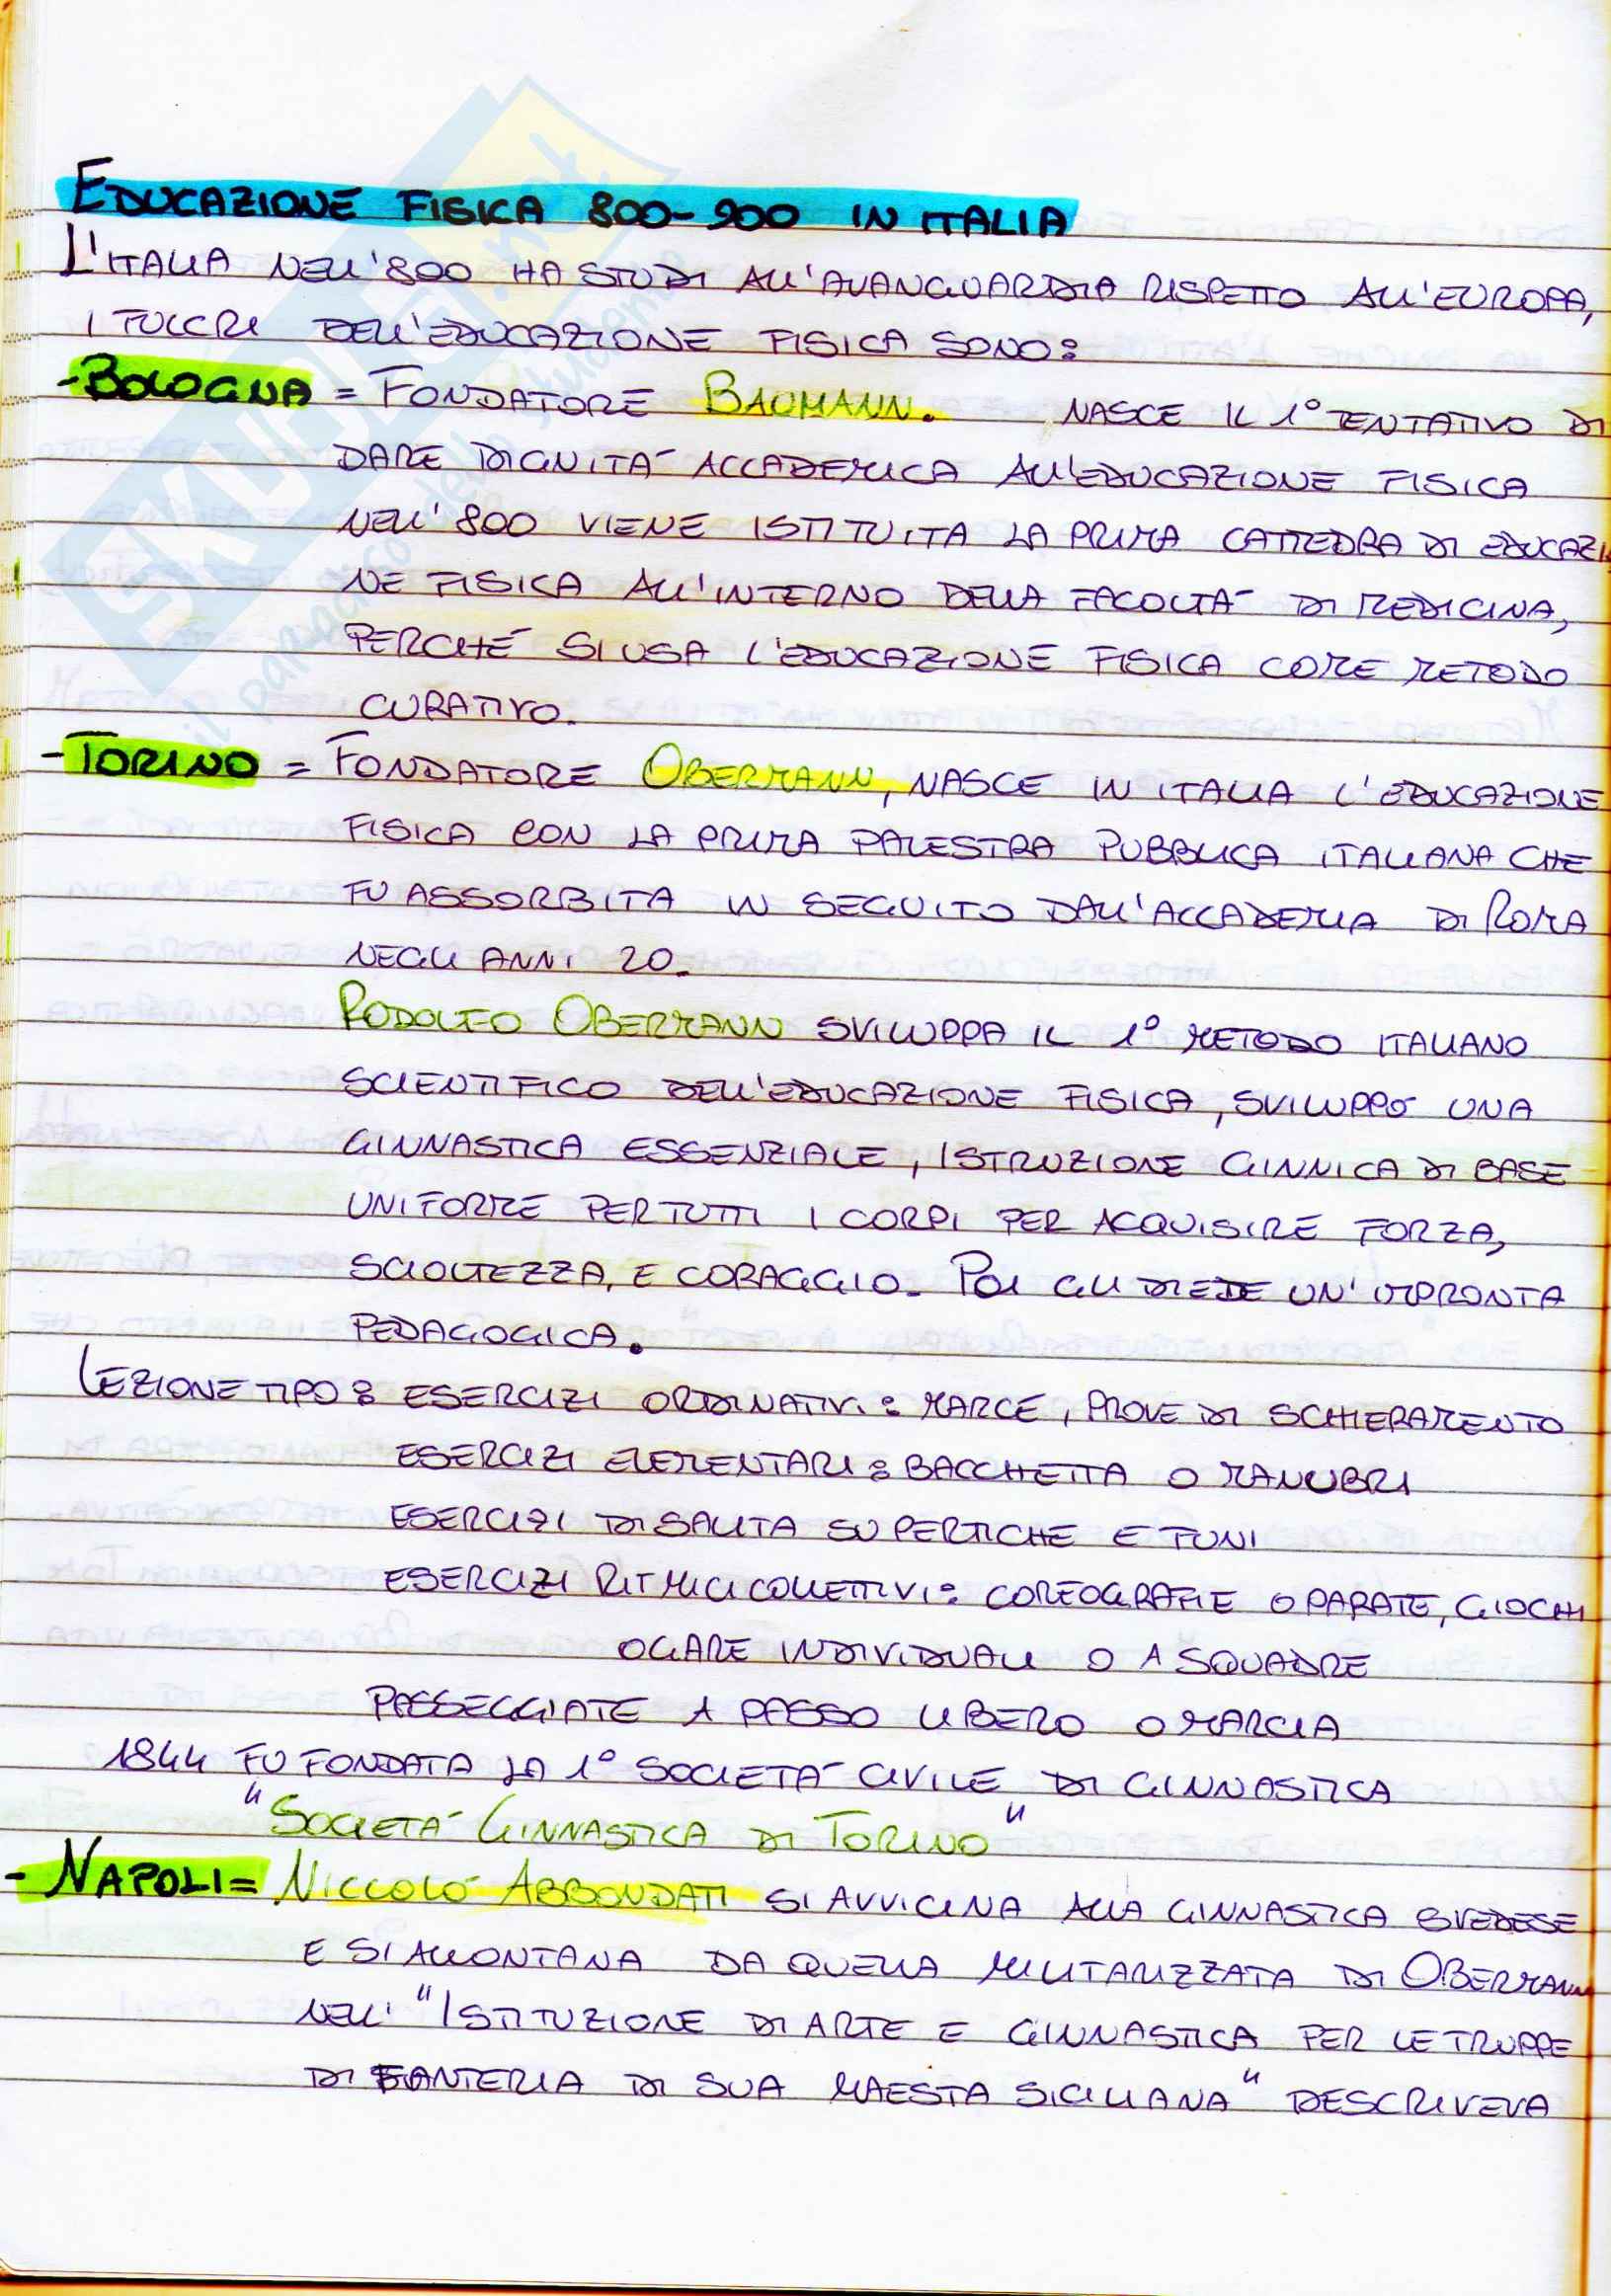 EDUCAZIONE FISICA 800-900 IN ITALIA
L'ITALIA NELL'800 HA STUDI ALL'AVANGUARDIA RISPETTO ALL'EUROPA,
I FULCRI DELL'EDUCAZIONE FISICA SONO:
-BOLOGNA = FONDATORE BAUMANN. NASCE IL 1° TENTATIVO DI
DARE DIGNITÀ ACCADEMICA ALL'EDUCAZIONE FISICA
NELL'800 VIENE ISTITUITA LA PRIMA CATTEDRA DI EDUCAZI
NE FISICA ALL'INTERNO DELLA FACOLTÀ DI MEDICINA,
PERCHÉ SI USA L'EDUCAZIONE FISICA COME METODO
CURATIVO.
-TORINO = FONDATORE OBERMANN, NASCE IN ITALIA L'EDUCAZIONE
FISICA CON LA PRIMA PALESTRA PUBBLICA ITALIANA CHE
FU ASSORBITA IN SEGUITO DALL'ACCADEMIA DI ROMA
NEGLI ANNI 20.
RODOLFO OBERMANN SVILUPPA IL 1° METODO ITALIANO
SCIENTIFICO DELL'EDUCAZIONE FISICA, SVILUPPÒ UNA
GINNASTICA ESSENZIALE, ISTRUZIONE GINNICA DI BASE
UNIFORME PER TUTTI I CORPI PER ACQUISIRE FORZA,
SCIOLTEZZA, E CORAGGIO. POI GLI DIEDE UN'IMPRONTA
PEDAGOGICA.
LEZIONE TIPO: ESERCIZI ORDINATIVI: MARCE, PROVE DI SCHIERAMENTO
ESERCIZI ELEMENTARI: BACCHETTA O MANUBRI
ESERCIZI DI SALITA SU PERTICHE E FUNI
ESERCIZI RITMICI COLLETTIVI: COREOGRAFIE O PARATE, GIOCHI
O GARE INDIVIDUALI O A SQUADRE
PASSEGGIATE A PASSO LIBERO O MARCIA
1844 FU FONDATA LA 1° SOCIETÀ CIVILE DI GINNASTICA
"SOCIETÀ GINNASTICA DI TORINO"
- NAPOLI = NICCOLÒ ABBONDATI SI AVVICINA ALLA GINNASTICA SVEDESE
E SI ALLONTANA DA QUELLA MILITARIZZATA DI OBERMANN
NELL'"ISTITUZIONE DI ARTE E GINNASTICA PER LE TRUPPE
DI FANTERIA DI SUA MAESTA SICILIANA" DESCRIVEVA
SKUOLA.net
il paradiso dello studente